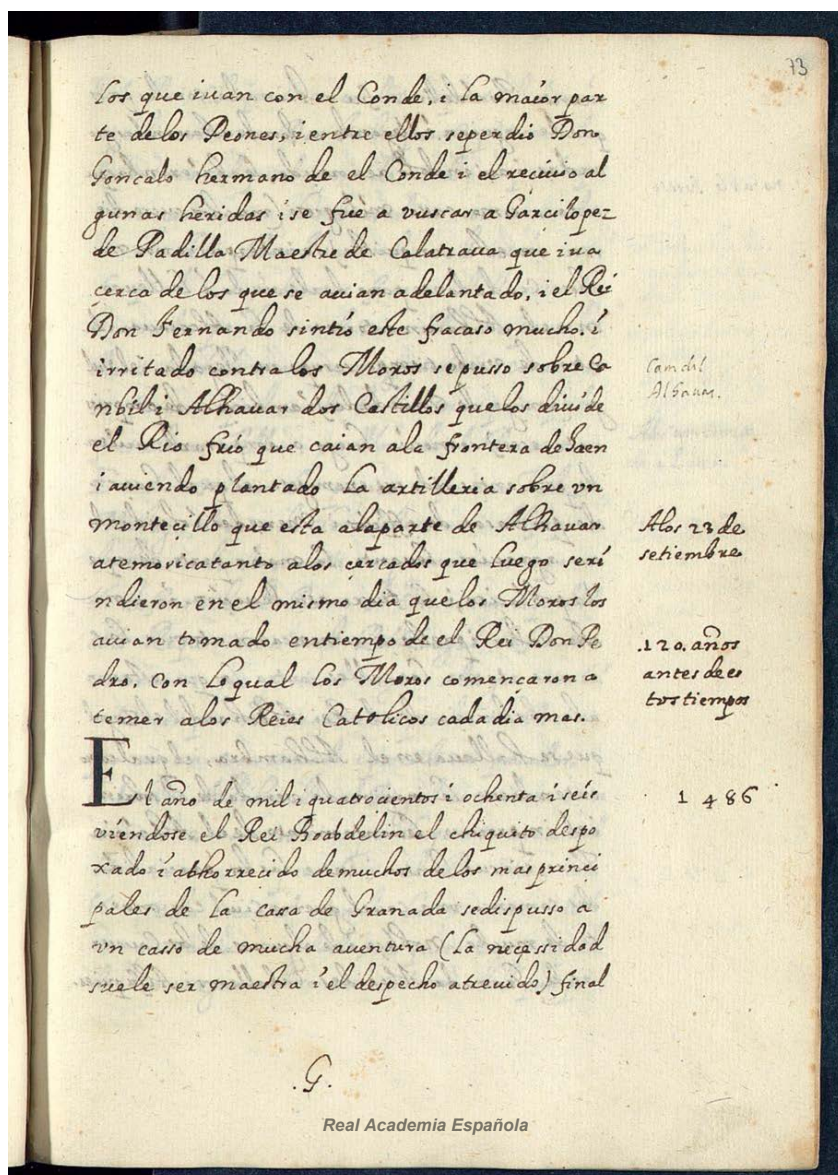 73
los que iuan con el Conde, i la maior par
te de los Peones, i entre ellos seperdio Don
Goncalo hermano de el Conde i el reciuio al
gunas heridas i se fue a vuscar a Garcilopez
de Padilla Maestre de Calatraua que iua
çerca de los que se auian adelantado, i el Rei
Don Fernando sintio este fracaso mucho. i
irritado contralos Moros se pusso sobre Ca
nbil i Alhauar dos Castillos que los diuide
el Rio frio que caian ala frontera de Jaen
i auiendo plantado la artilleria sobre vn
monteçillo que esta alaparte de Alhauar
atemoricatanto alos çercados que luego seri
ndieron en el mismo dia que los Moros los
auian tomado entiempo de el Rei Don Pe
dro. Con loqual los Moros començaron a
temer alos Reies Catolicos cada dia mas.
El año de mil i quatrocientos i ochenta i seis
viendose el Rei Boabdelin el chiquito despo
xado i abhorrecido demuchos delos mas princi
pales de la casa de Granada sedispusso a
vn casso de mucha auentura (la neçessidad
suele ser maestra i el despecho atreuido) final
Alhauar.
Alos 23 de
setiembre
.120. años
antes de es
tos tiempos
1486
.G.
Real Academia Española